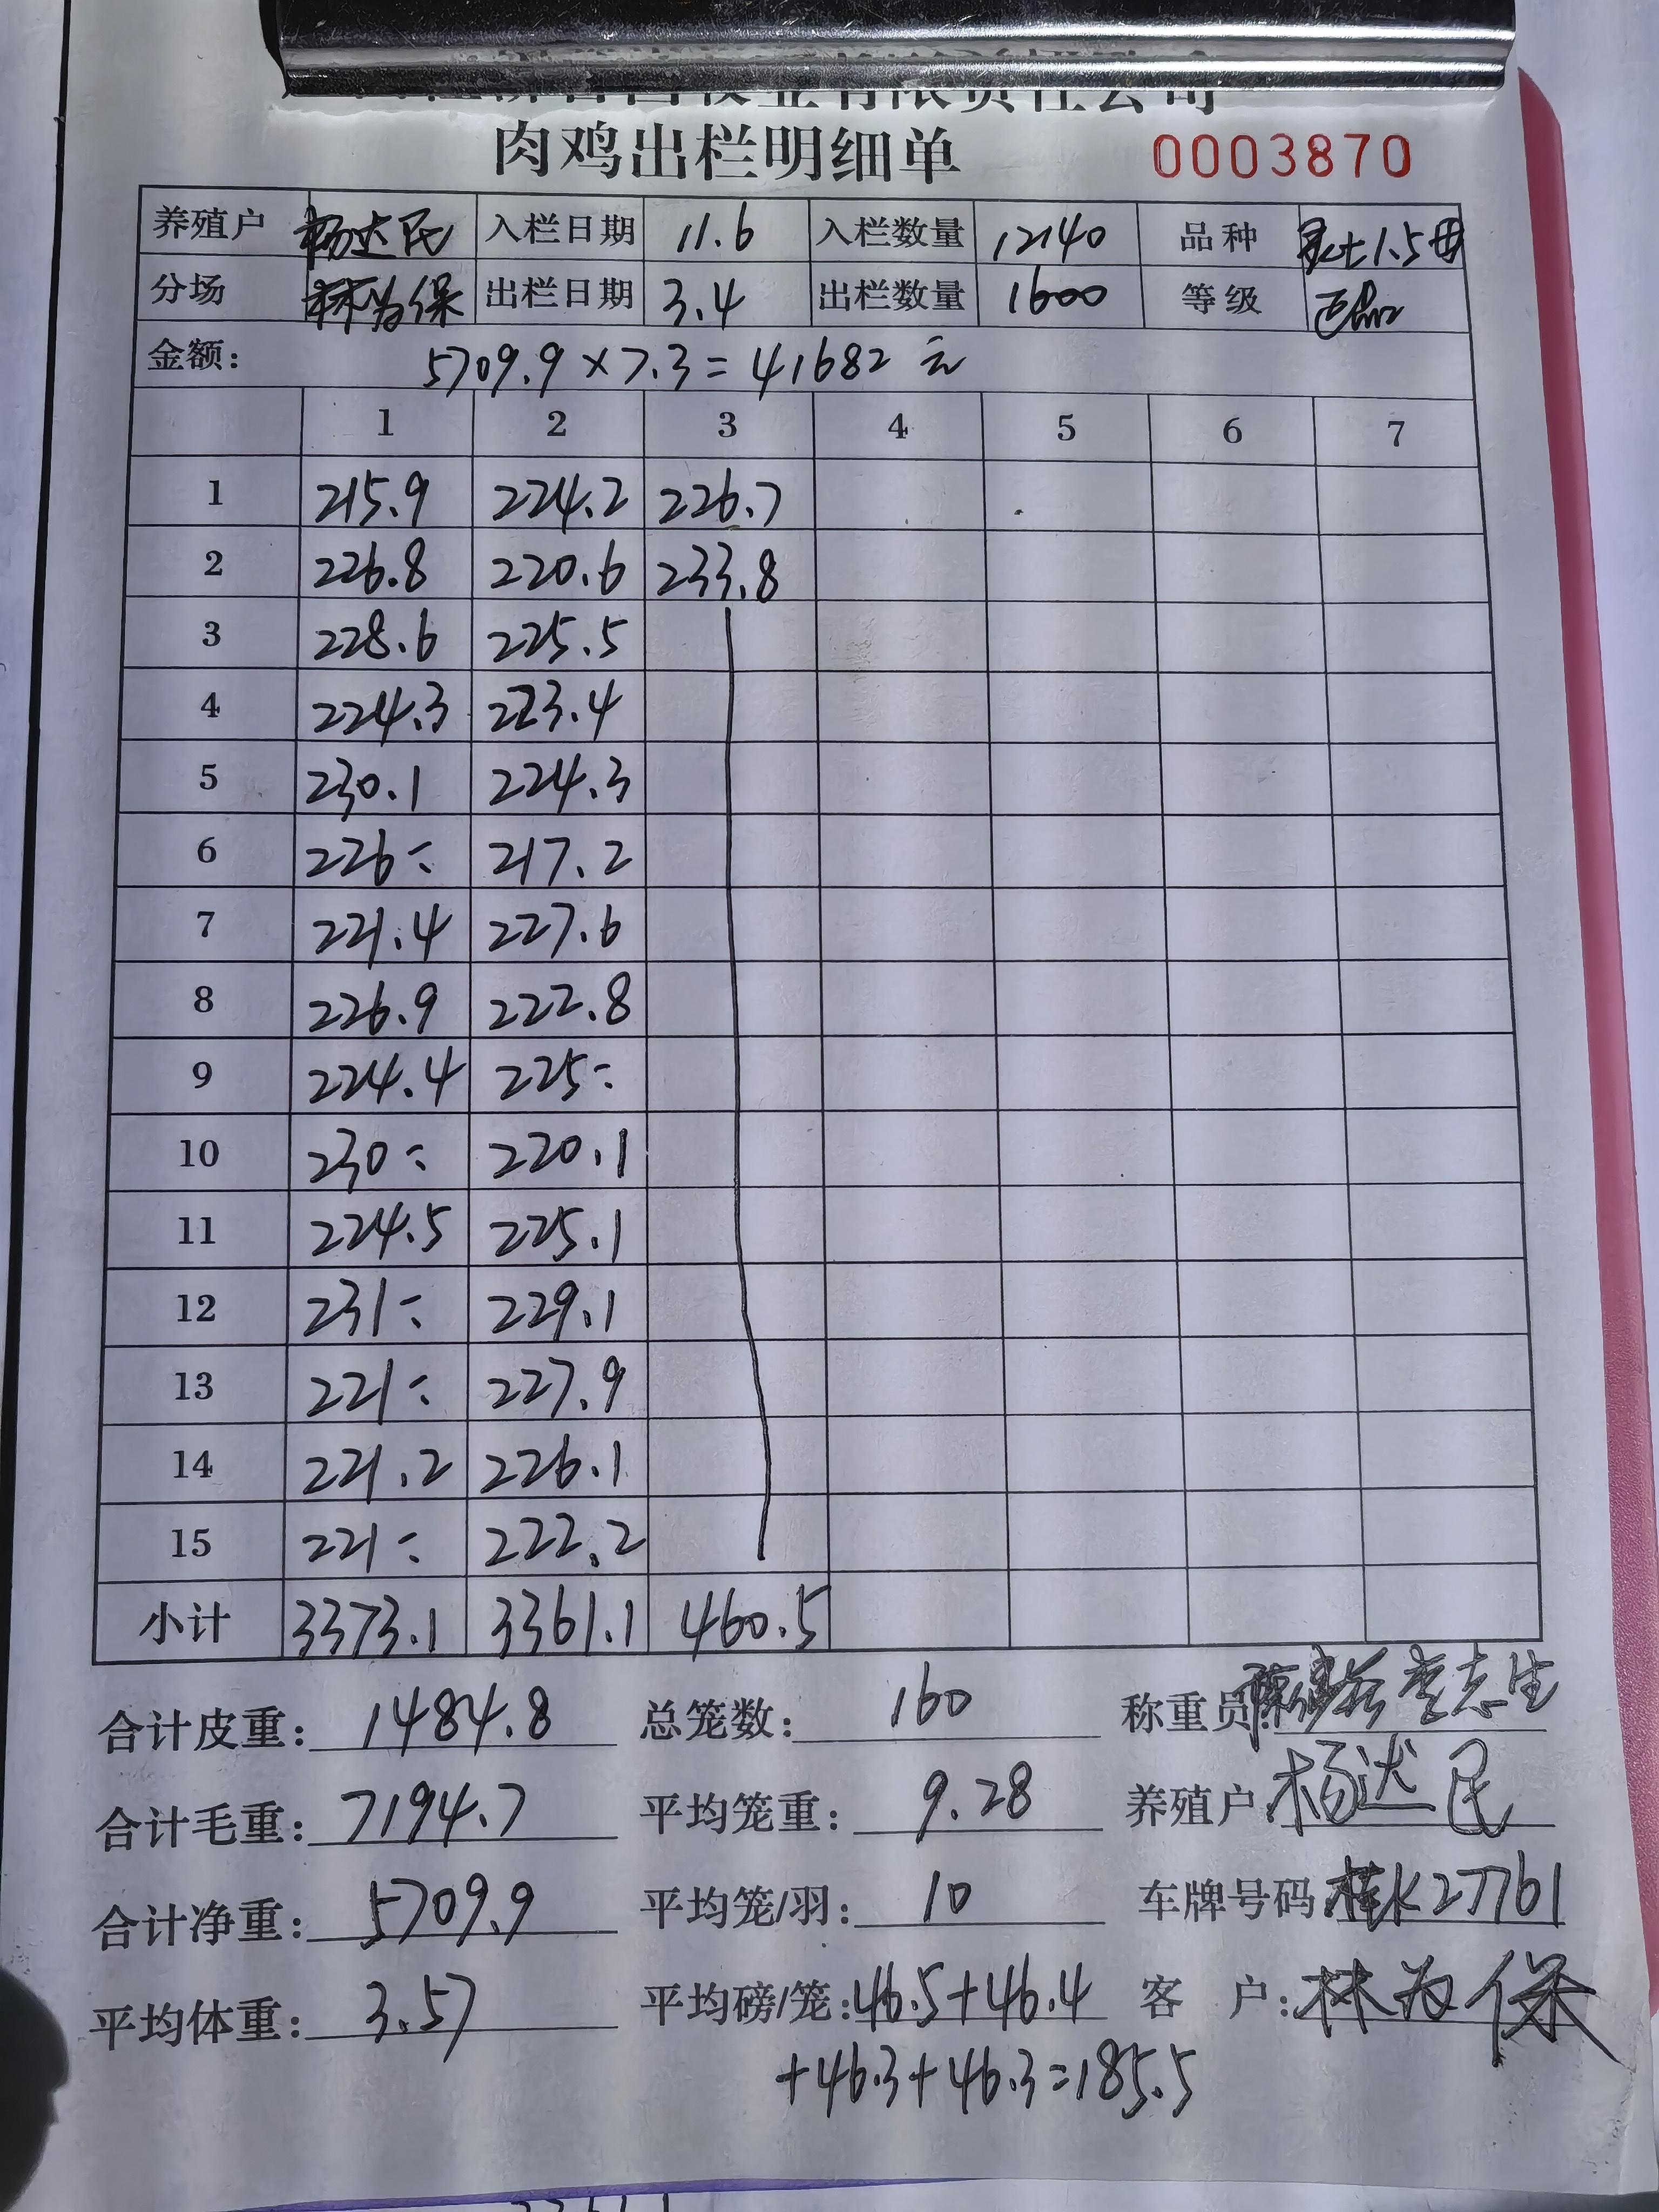 有限责任公司
肉鸡出栏明细单 0003870
养殖户 杨达民 入栏日期 11.6 入栏数量 12140 品种 1.5母
分场 林为保 出栏日期 3.4 出栏数量 1600 等级
金额: 5709.9×7.3=41682元
1 2 3 4 5 6 7
1 215.9 224.2 226.7
2 226.8 220.6 233.8
3 228.6 225.5
4 224.3 223.4
5 230.1 224.3
6 226- 217.2
7 221.4 227.6
8 226.9 222.8
9 224.4 225-
10 230- 220.1
11 224.5 225.1
12 231- 229.1
13 221- 227.9
14 221.2 226.1
15 221- 222.2
小计 3373.1 3361.1 460.5
合计皮重: 1484.8 总笼数: 160 称重员: 李志生
合计毛重: 7194.7 平均笼重: 9.28 养殖户: 杨达民
合计净重: 5709.9 平均笼/羽: 10 车牌号码: 桂K27761
平均体重: 3.57 平均磅/笼: 46.5+46.4 客 户: 林为保
+46.3+46.3=185.5